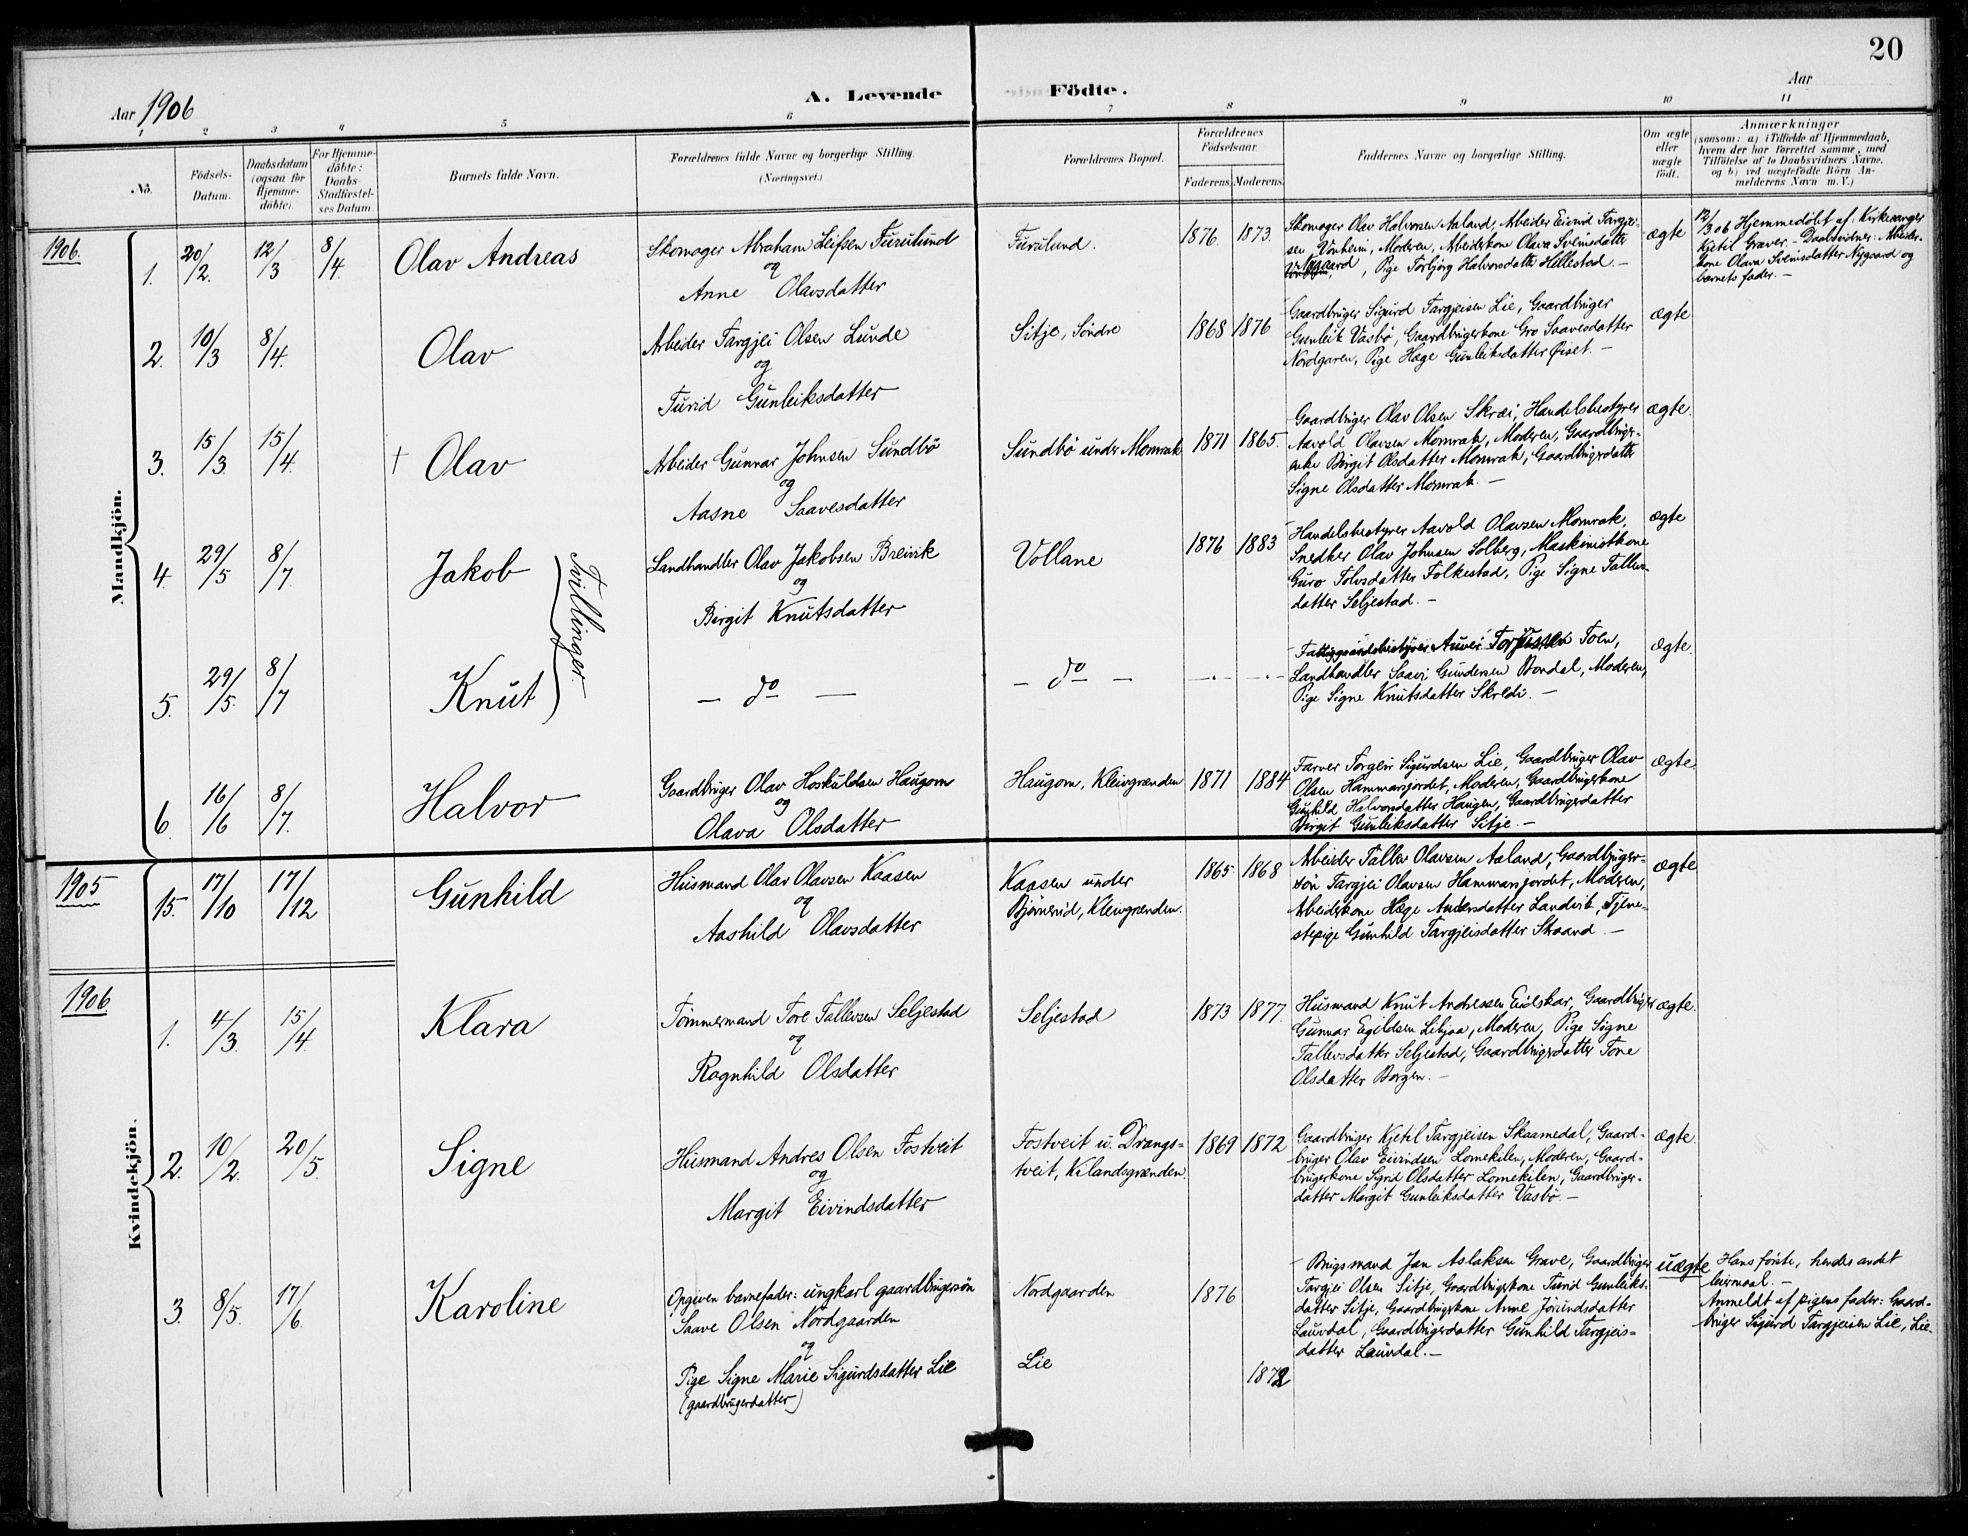 20
A. Levende
Födte.
Aar 1906
Aar
1 2 3 4 5 6 7 8 9 10 11
No.
Födsels-
Datum.
Daabsdatum
(ogsaa for
Hjemme-
döbte).
For Hjemme-
döbte:
Daabs-
Stadfæstel-
ses Datum.
Barnets fulde Navn.
Forældrenes fulde Navne og borgerlige Stilling.
(Næringsvei.)
Forældrenes Bopæl.
Forældrenes
Födselsaar.
Faderens. Moderens.
Faddernes Navne og borgerlige Stilling.
Om ægte
eller
uægte
födt.
Anmærkninger
(saasom: a) i Tilfælde af Hjemmedaab,
hvem der har forrettet samme, med
Tilföielse af to Daabsvidners Navne,
og b) ved uægtefödte Börn An-
melderens Navn m. V.)
Mandkjön.
1906.
1. 20/2. 12/3 8/4 Olav Andreas
Skomager Abraham Leifsen Furulund
og
Anne Olavsdatter
Furulund. 1876. 1873.
Skomager Olav Halvorsen Aaland, Arbeider Eivind Targjei-
sen Vinheim, Moderen, Arbeiderkone Olava Sveinsdatter
Nygaard, Pige Torbjörg Halvorsdatter Hellestad. —
ægte
12/3 06 Hjemmedöbt af Kirkesanger
Kjetil Graver. — Daabsvidner: Arbeider-
kone Olava Sveinsdatter Nygaard og
barnets fader. —
2. 10/3 8/4. Olav
Arbeider Targjei Olsen Lunde
og
Turid Gunleiksdatter
Sitje, Söndre 1868 1876
Gaardbruger Sigurd Targjeisen Lie, Gaardbruger
Gunleik Vasbö, Gaardbrugerkone Gro Saavesdatter
Nordgaren, Pige Hæge Gunleiksdatter Öiset. —
ægte
3. 15/3 15/4. † Olav
Arbeider Gunnar Johnsen Sundbö
og
Aasne Saavesdatter
Sundbö under Momrak 1871 1865.
Gaardbruger Olav Olsen Skræi, Handelsbestyrer
Aavold Olavsen Momrak, Moderen, Gaardbruger-
enke Birgit Olsdatter Momrak, Gaardbrugerdatter
Signe Olsdatter Momrak. —
ægte.
4. 29/5 8/7. Jakob
Tvillinger.
Landhandler Olav Jakobsen Breivik
og
Birgit Knutsdatter
Vollane 1876 1883
Handelsbestyrer Aavold Olavsen Momrak,
Snedker Olav Johnsen Solberg, Maskinistkone
Guro Tolvsdatter Folkestad, Pige Signe Tallevs-
datter Seljestad. —
ægte
5. 29/5. 8/7 Knut
— do —
— do —
Fattiggaardsbestyrer Toen,
Landhandler Saavi Gundersen Bondal, Moderen,
Pige Signe Knutsdatter Skredi. —
ægte.
6. 16/6 8/7. Halvor
Gaardbruger Olav Hoskuldsen Haugom
og
Olava Olsdatter
Haugom, Kleivgrænden 1871 1884
Farver Torgeir Sigurdsen Lie, Gaardbruger Olav
Olsen Hammarsjordet, Moderen, Gaardbrugerkone
Gunhild Halvorsdatter Haugen, Gaardbrugerdatter
Birgit Gunleiksdatter Sitje. —
ægte
Kvindekjön.
1905
15. 17/10 17/12 Gunhild
Husmand Olav Olavsen Kaasen
og
Aashild Olavsdatter
Kaasen under
Bjönnerud, Kleivgrænden. 1865 1868
Arbeider Tallev Olavsen Aaland, Gaardbruger-
sön Targjei Olavsen Hammarsjordet, Moderen,
Arbeiderkone Hæge Andersdatter Landvik, Tjene-
stepige Gunhild Targjeisdatter Skaard. —
ægte
1906.
1. 4/3. 15/4. Klara
Tömmermand Tore Tallevsen Seljestad
og
Ragnhild Olsdatter
Seljestad 1873 1877.
Husmand Knut Andressen Eidskar, Gaardbruger
Gunnar Egildsen Libjaa, Moderen, Pige Signe
Tallevsdatter Seljestad, Gaardbrugerdatter Tone
Olsdatter Borgen. —
ægte.
2. 10/2. 20/5. Signe
Husmand Andres Olsen Fostveit
og
Margit Eivindsdatter
Fostveit u. Drangs-
tveit, Kilandsgrænden 1869 1872
Gaardbruger Kjetil Targjeisen Skaamedal, Gaard-
bruger Olav Eivindsen Lomekilen, Moderen, Gaard-
brugerkone Sigrid Olsdatter Lomekilen, Gaardbruger-
datter Margit Gunleiksdatter Vasbö. —
ægte.
3. 8/5. 17/6. Karoline
Opgiven barnefader: ungkarl gaardbrugersön
Saave Olsen Nordgaarden
og
Pige Signe Marie Sigurdsdatter Lie
(gaardbrugerdatter)
Nordgaarden 1876
Lie 1872
Brugsmand Jon Aslaksen Grave, Gaardbruger
Targjei Olsen Sitje, Gaardbrugerkone Turid Gunleiks-
datter Sitje, Gaardbrugerkone Anne Jörundsdatter
Lauvdal, Gaardbrugerdatter Gunhild Targjeis-
datter Lauvdal. —
uægte
Hans förste, hendes andet
leiermaal. —
Anmeldt af pigens fader: Gaard-
bruger Sigurd Targjeisen Lie, Lie.